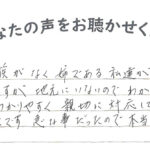 なたの声をお聴かせく
がなく姉である私達が
すが地元にいないのでわか
わかりやすく親切に対応して
です 急な事だったので本当